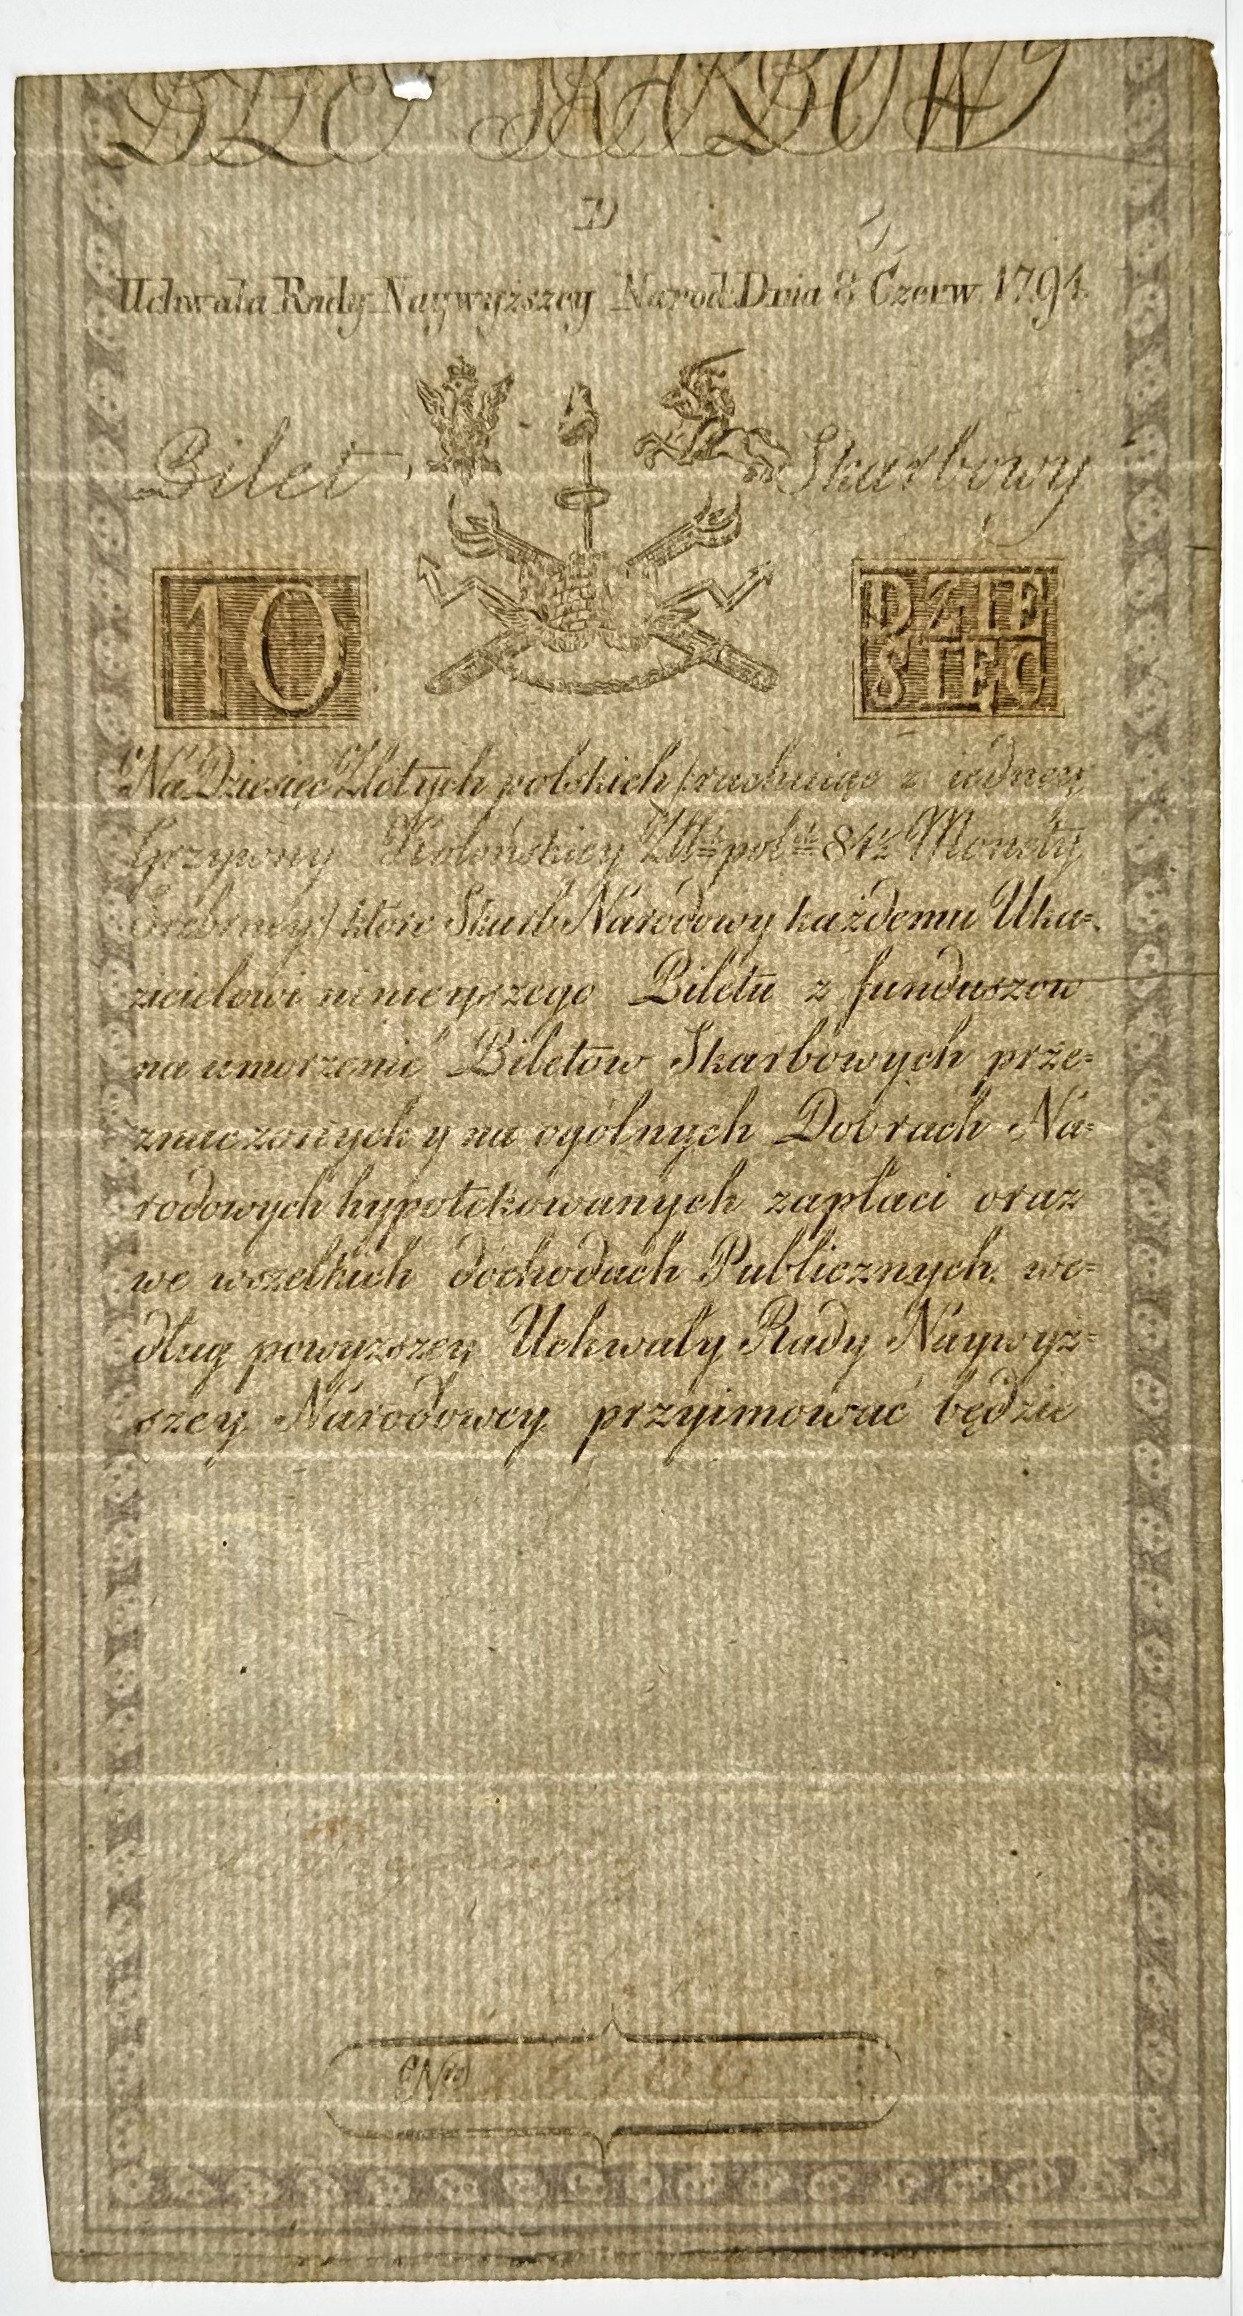 BILE SKARBOWY
D
Uchwała Rady Naywyższey Narod: Dnia 8 Czerw. 1794.
Bilet Skarbowy
10
DZIE
SIĘĆ
Na Dziesięć Złotych polskich /rachuiąc z iedney
Grzywny Kolońskiey Złł: pol: 84½ Monety
Srebrney/ które Skarb Narodowy każdemu Uka=
zicielowi ninieyszego Biletu z funduszow
na umorzenie Biletow Skarbowych prze=
znaczonych y na ogólnych Dobrach Na=
rodowych hypotekowanych zapłaci oraz
we wszelkich dochodach Publicznych we=
dług powyższey Uchwały Rady Naywyż=
szey Narodowey przyimować będzie
Nro